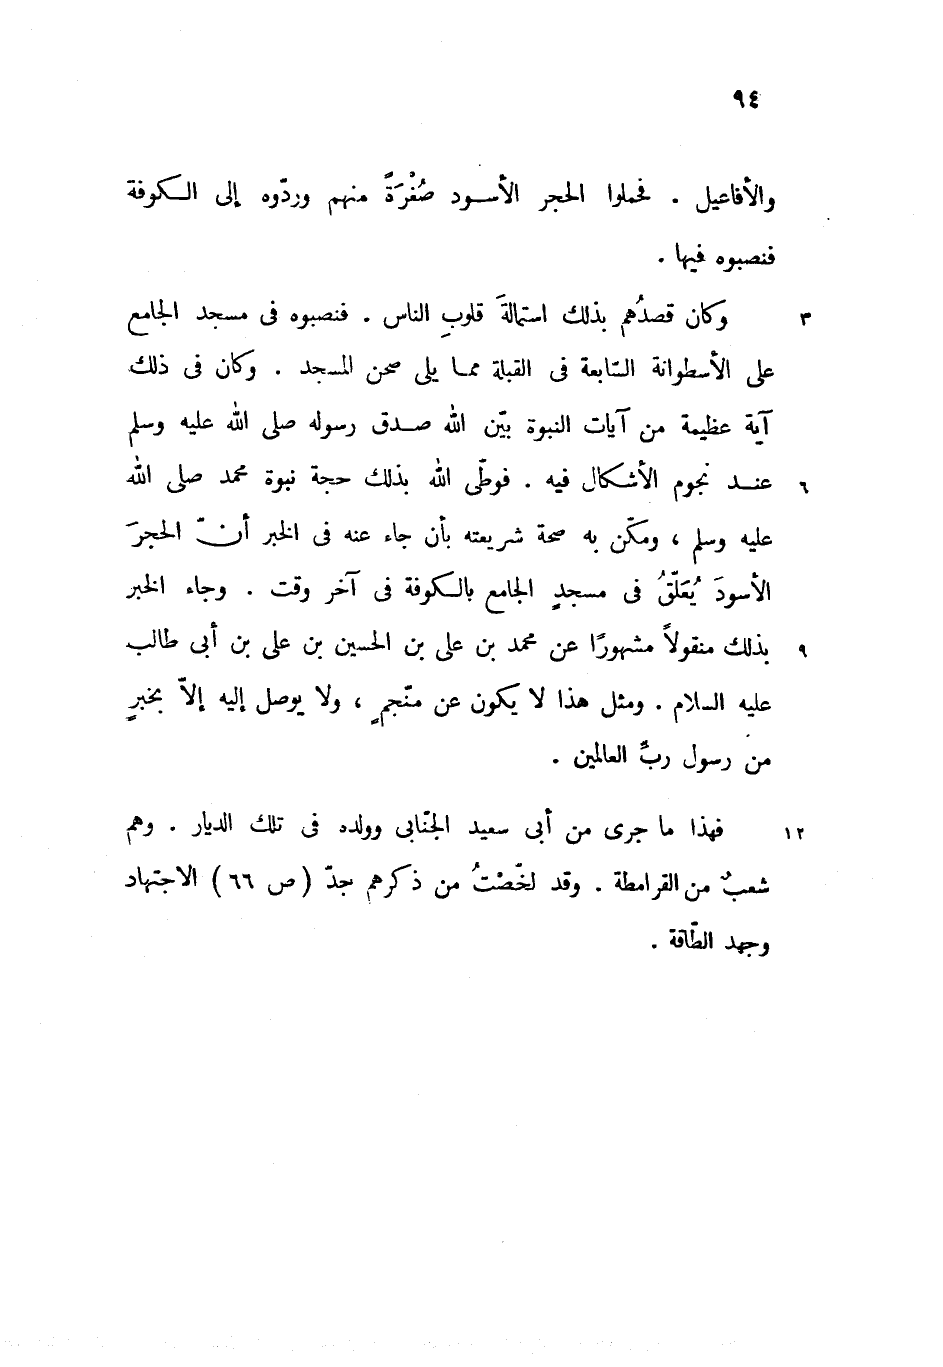 ٩٤
والأفاعيل . فحملوا الحجر الأسود صُغْرَةً منهم وردّوه إلى الكوفة
فنصبوه فيها .
٣ وكان قصدُهم بذلك استمالةَ قلوبِ الناس . فنصبوه فى مسجد الجامع
على الأسطوانة السّابعة فى القبلة مما يلى صحن المسجد . وكان فى ذلك
آية عظيمة من آيات النبوة بيّن الله صدق رسوله صلى الله عليه وسلم
٦ عند نجوم الأشكال فيه . فوطّى الله بذلك حجة نبوة محمد صلى الله
عليه وسلم ، ومكّن به صحة شريعته بأن جاء عنه فى الخبر أنّ الحجرَ
الأسودَ يُعَلَّقُ فى مسجدِ الجامع بالكوفة فى آخر وقت . وجاء الخبر
٩ بذلك منقولاً مشهورًا عن محمد بن على بن الحسين بن على بن أبى طالب
عليه السلام . ومثل هذا لا يكون عن منّجمٍ ، ولا يوصل إليه إلاّ بخبرٍ
من رسول ربِّ العالمين .
١٢ فهذا ما جرى من أبى سعيد الجنّابى وولده فى تلك الديار . وهم
شعبٌ من القرامطة . وقد لخّصْتُ من ذكرهم جدّ (ص ٦٦) الاجتهاد
وجهد الطّاقة .